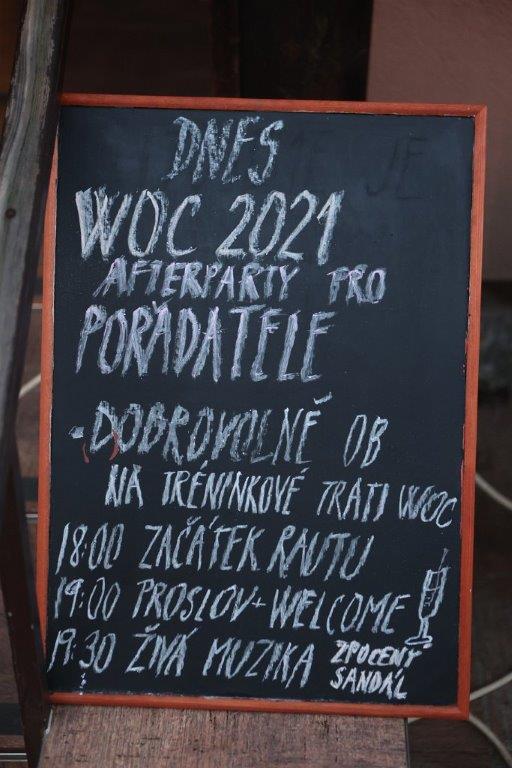 DNES
WOC 2021
AFTERPARTY PRO
POŘÁDATELE
• DOBROVOLNÉ OB
NA TRÉNINKOVÉ TRATI WOC
18:00 ZAČÁTEK RAUTU
19:00 PROSLOV + WELCOME
19:30 ŽIVÁ MUZIKA ZPOCENÝ
SANDÁL